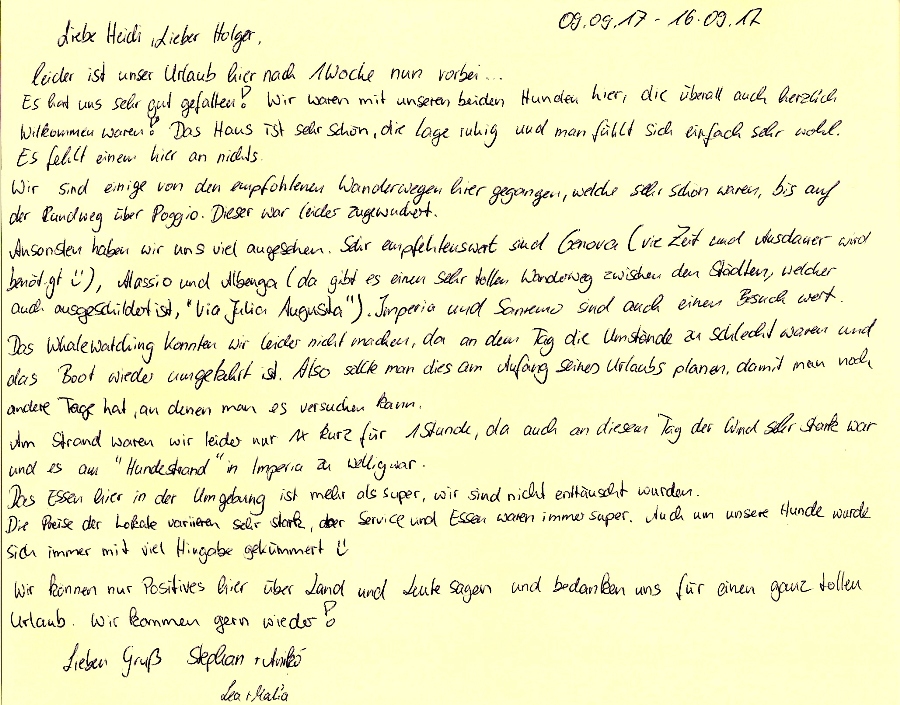 09.09.17 - 16.09.17
Liebe Heidi, Lieber Holger,
leider ist unser Urlaub hier nach 1 Woche nun vorbei...
Es hat uns sehr gut gefallen! Wir waren mit unseren beiden Hunden hier, die überall auch herzlich
Willkommen waren! Das Haus ist sehr schön, die Lage ruhig und man fühlt sich einfach sehr wohl.
Es fehlt einem hier an nichts.
Wir sind einige von den empfohlenen Wanderwegen hier gegangen, welche sehr schön waren, bis auf
der Rundweg über Poggio. Dieser war leider zugewuchert.
Ansonsten haben wir uns viel angesehen. Sehr empfehlenswert sind Genova (vie Zeit und Ausdauer wird
benötigt Ü), Alassio und Albenga (da gibt es einen sehr tollen Wanderweg zwischen den Städten, welcher
auch ausgeschildert ist, "Via Julia Augusta"). Imperia und Sanremo sind auch einen Besuch wert.
Das Whalewatching konnten wir leider nicht machen, da an dem Tag die Umstände zu schlecht waren und
das Boot wieder umgekehrt ist. Also sollte man dies am Anfang seines Urlaubs planen, damit man noch
andere Tage hat, an denen man es versuchen kann.
Am Strand waren wir leider nur 1x kurz für 1 Stunde, da auch an diesem Tag der Wind sehr stark war
und es am "Hundestrand" in Imperia zu wellig war.
Das Essen hier in der Umgebung ist mehr als super, wir sind nicht enttäuscht wurden.
Die Preise der Lokale variieren sehr stark, aber Service und Essen waren immer super. Auch um unsere Hunde wurde
sich immer mit viel Hingabe gekümmert Ü
Wir können nur Positives hier über Land und Leute sagen und bedanken uns für einen ganz tollen
Urlaub. Wir kommen gern wieder!
Lieben Gruß Stephan + Anikó
Lea +